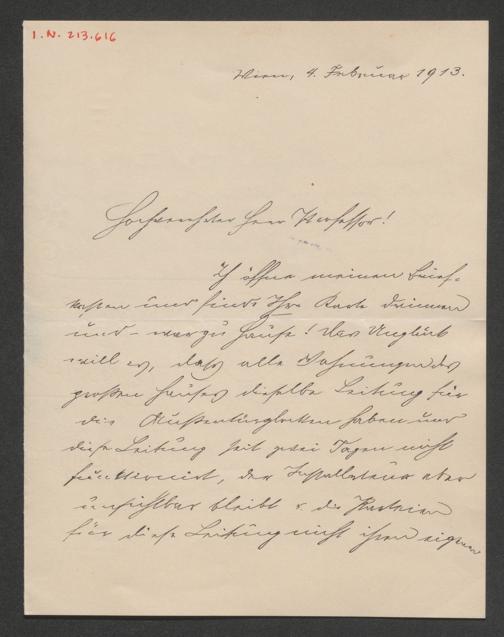 I.N. 213.616
Wien, 4. Februar 1913.
Hochverehrter Herr Professor!
Ich öffne meinen Brief-
kasten und finde Ihre Karte drinnen
und – war zu Hause! Das Unglück
will es, daß alle Wohnungen des
großen Hauses dieselbe Leitung für
die Aussenthürglocken haben und
diese Leitung seit zwei Tagen nicht
funktionirt, der Installateur aber
unsichtbar bleibt u. die Parteien
für diese Leitung nicht ihren eigenen